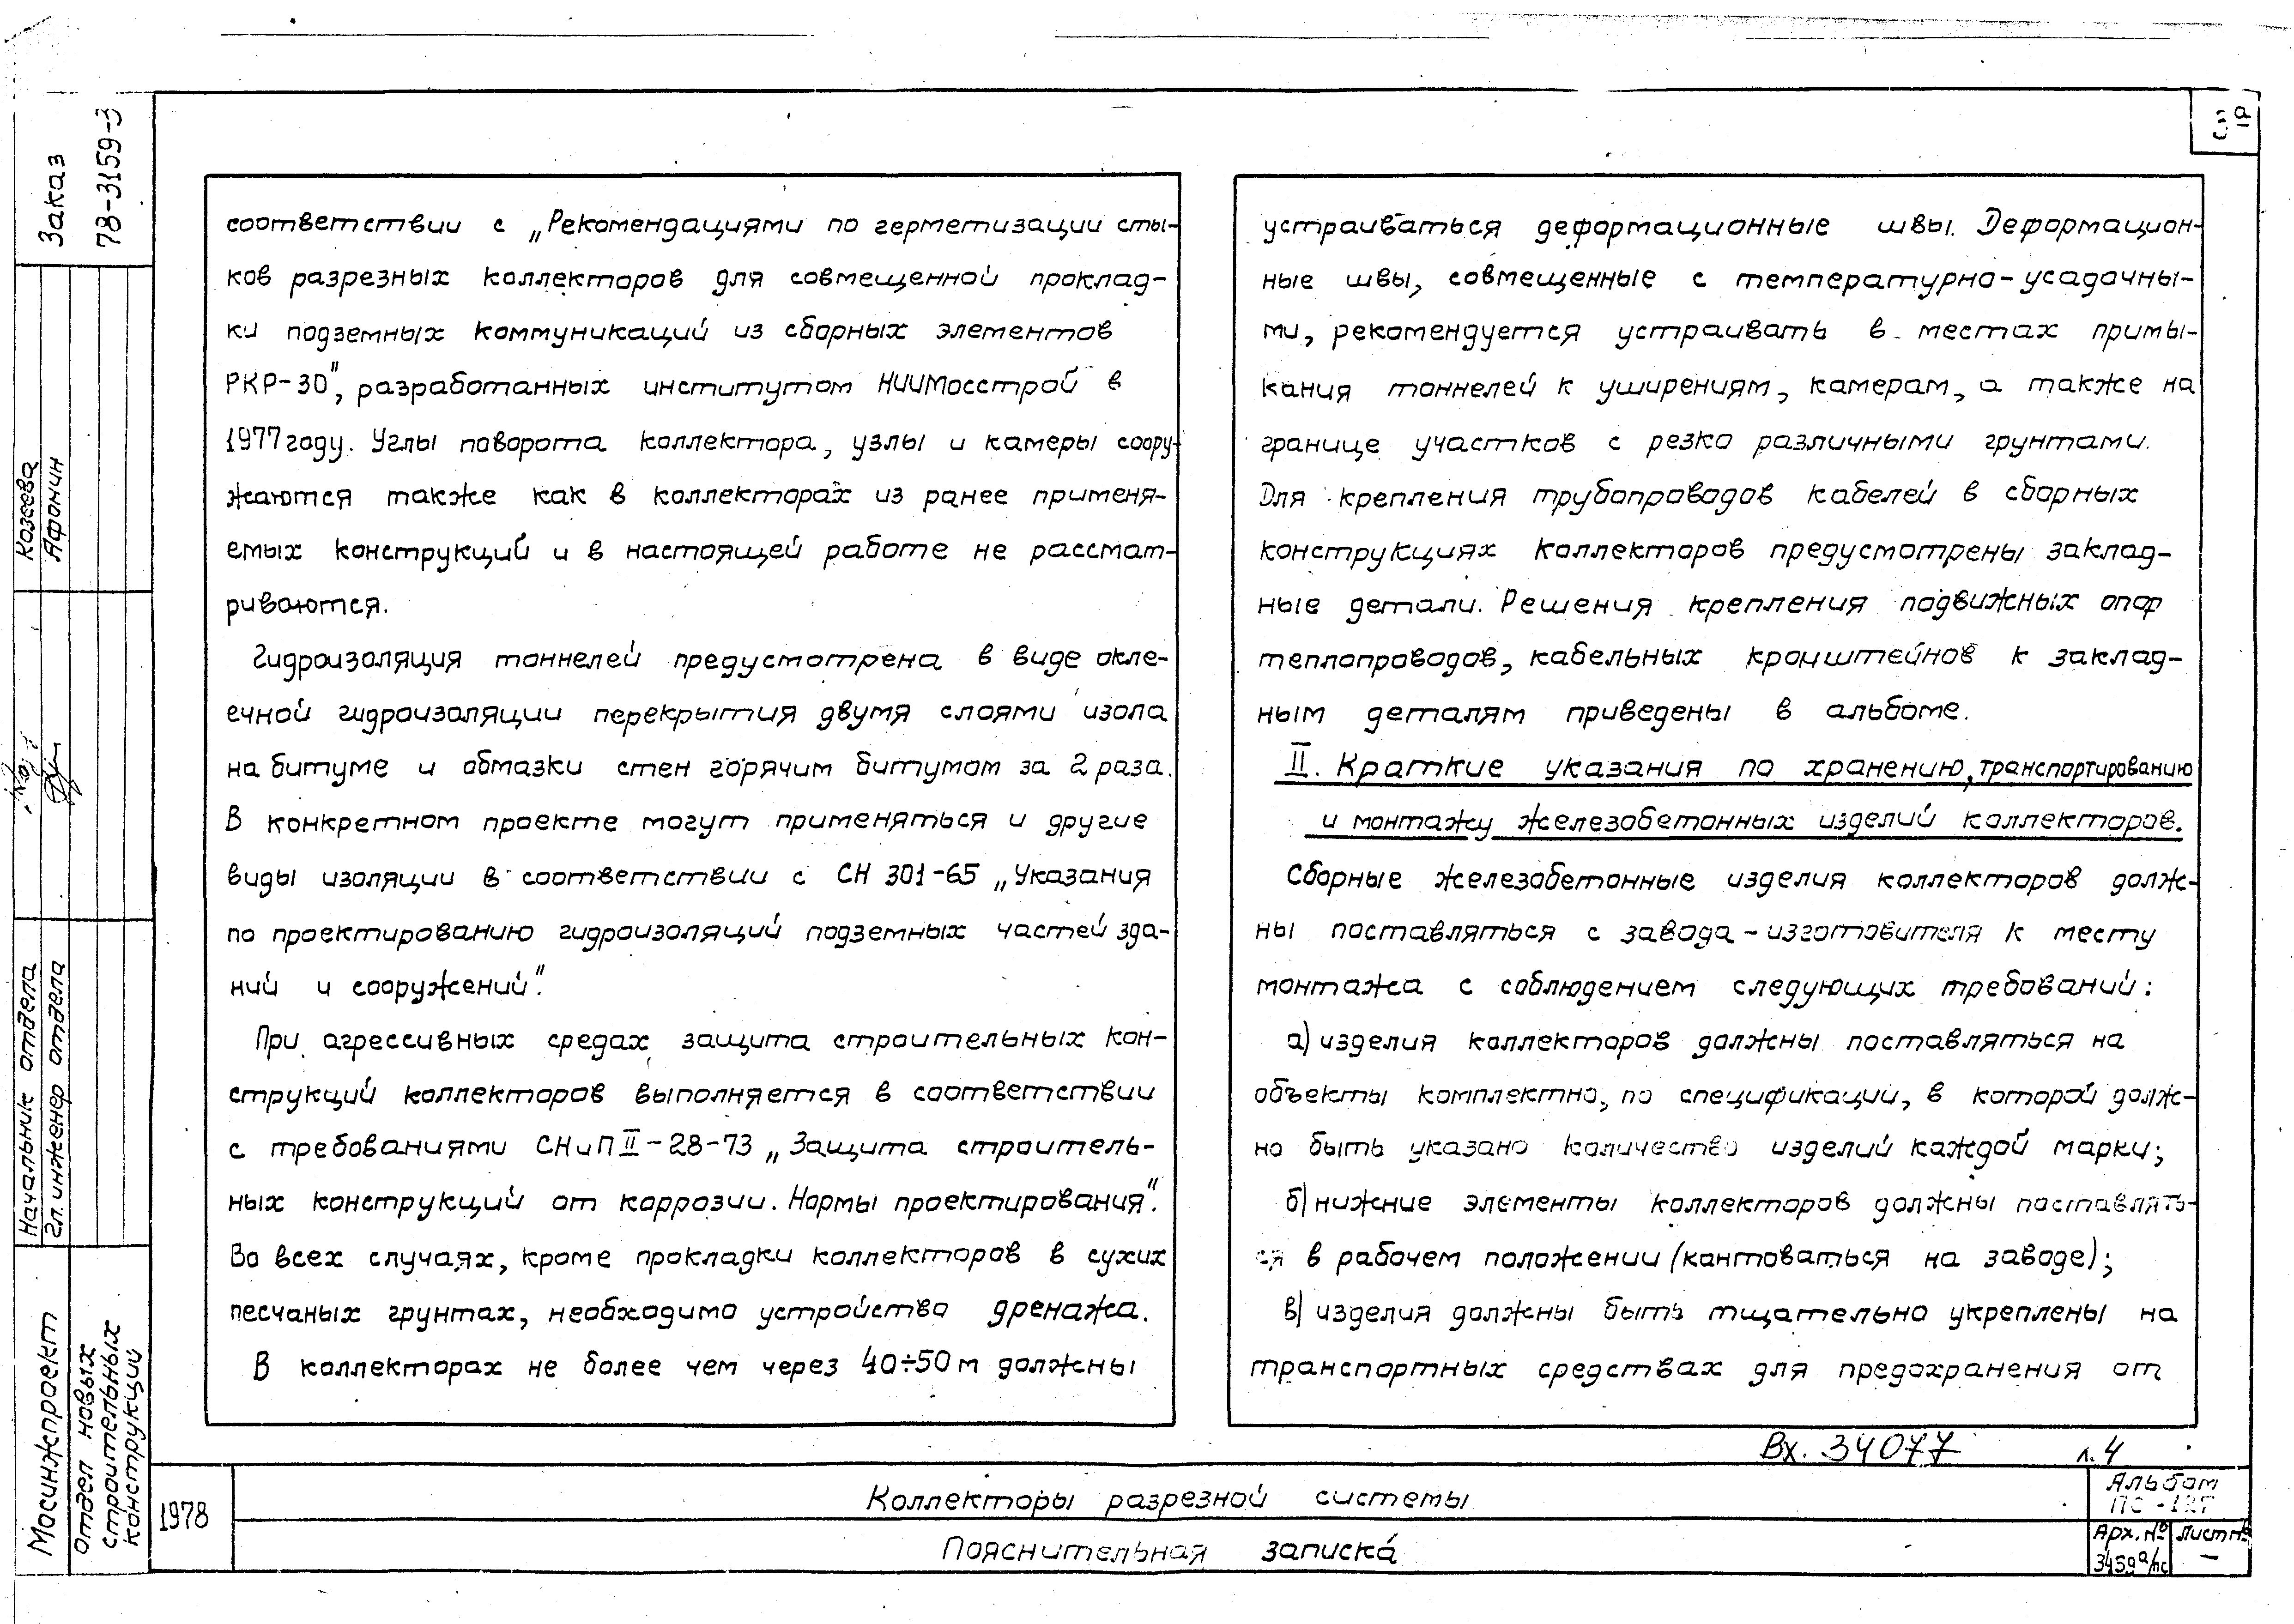 3а
Заказ
78-3159-3
Козеева
Афонин
Начальник отдела
Гл. инженер отдела
Мосинжпроект
Отдел новых
строительных
конструкций
соответствии с „Рекомендациями по герметизации сты-
ков разрезных коллекторов для совмещенной проклад-
ки подземных коммуникаций из сборных элементов
РКР-30", разработанных институтом НИИМосстрой в
1977 году. Углы поворота коллектора, узлы и камеры соору-
жаются также как в коллекторах из ранее применя-
емых конструкций и в настоящей работе не рассмат-
риваются.
Гидроизоляция тоннелей предусмотрена в виде окле-
ечной гидроизоляции перекрытия двумя слоями изола
на битуме и обмазки стен горячим битумом за 2 раза.
В конкретном проекте могут применяться и другие
виды изоляции в соответствии с СН 301-65 „Указания
по проектированию гидроизоляций подземных частей зда-
ний и сооружений".
При агрессивных средах защита строительных кон-
струкций коллекторов выполняется в соответствии
с требованиями СНиП II-28-73 „Защита строитель-
ных конструкций от коррозии. Нормы проектирования".
Во всех случаях, кроме прокладки коллекторов в сухих
песчаных грунтах, необходимо устройство дренажа.
В коллекторах не более чем через 40÷50 м должны
устраиваться деформационные швы. Деформацион-
ные швы, совмещенные с температурно-усадочны-
ми, рекомендуется устраивать в местах примы-
кания тоннелей к уширениям, камерам, а также на
границе участков с резко различными грунтами.
Для крепления трубопроводов кабелей в сборных
конструкциях коллекторов предусмотрены заклад-
ные детали. Решения крепления подвижных опор
теплопроводов, кабельных кронштейнов к заклад-
ным деталям приведены в альбоме.
II. Краткие указания по хранению, транспортированию
и монтажу железобетонных изделий коллекторов.
Сборные железобетонные изделия коллекторов долж-
ны поставляться с завода-изготовителя к месту
монтажа с соблюдением следующих требований:
а) изделия коллекторов должны поставляться на
объекты комплектно, по спецификации, в которой долж-
но быть указано количество изделий каждой марки;
б) нижние элементы коллекторов должны поставлять-
ся в рабочем положении (кантоваться на заводе);
в) изделия должны быть тщательно укреплены на
транспортных средствах для предохранения от
Вх. 34077 л. 4
1978
Коллекторы разрезной системы
Пояснительная записка
Альбом
ПС-127
Арх. № Лист №
3459а/пс —